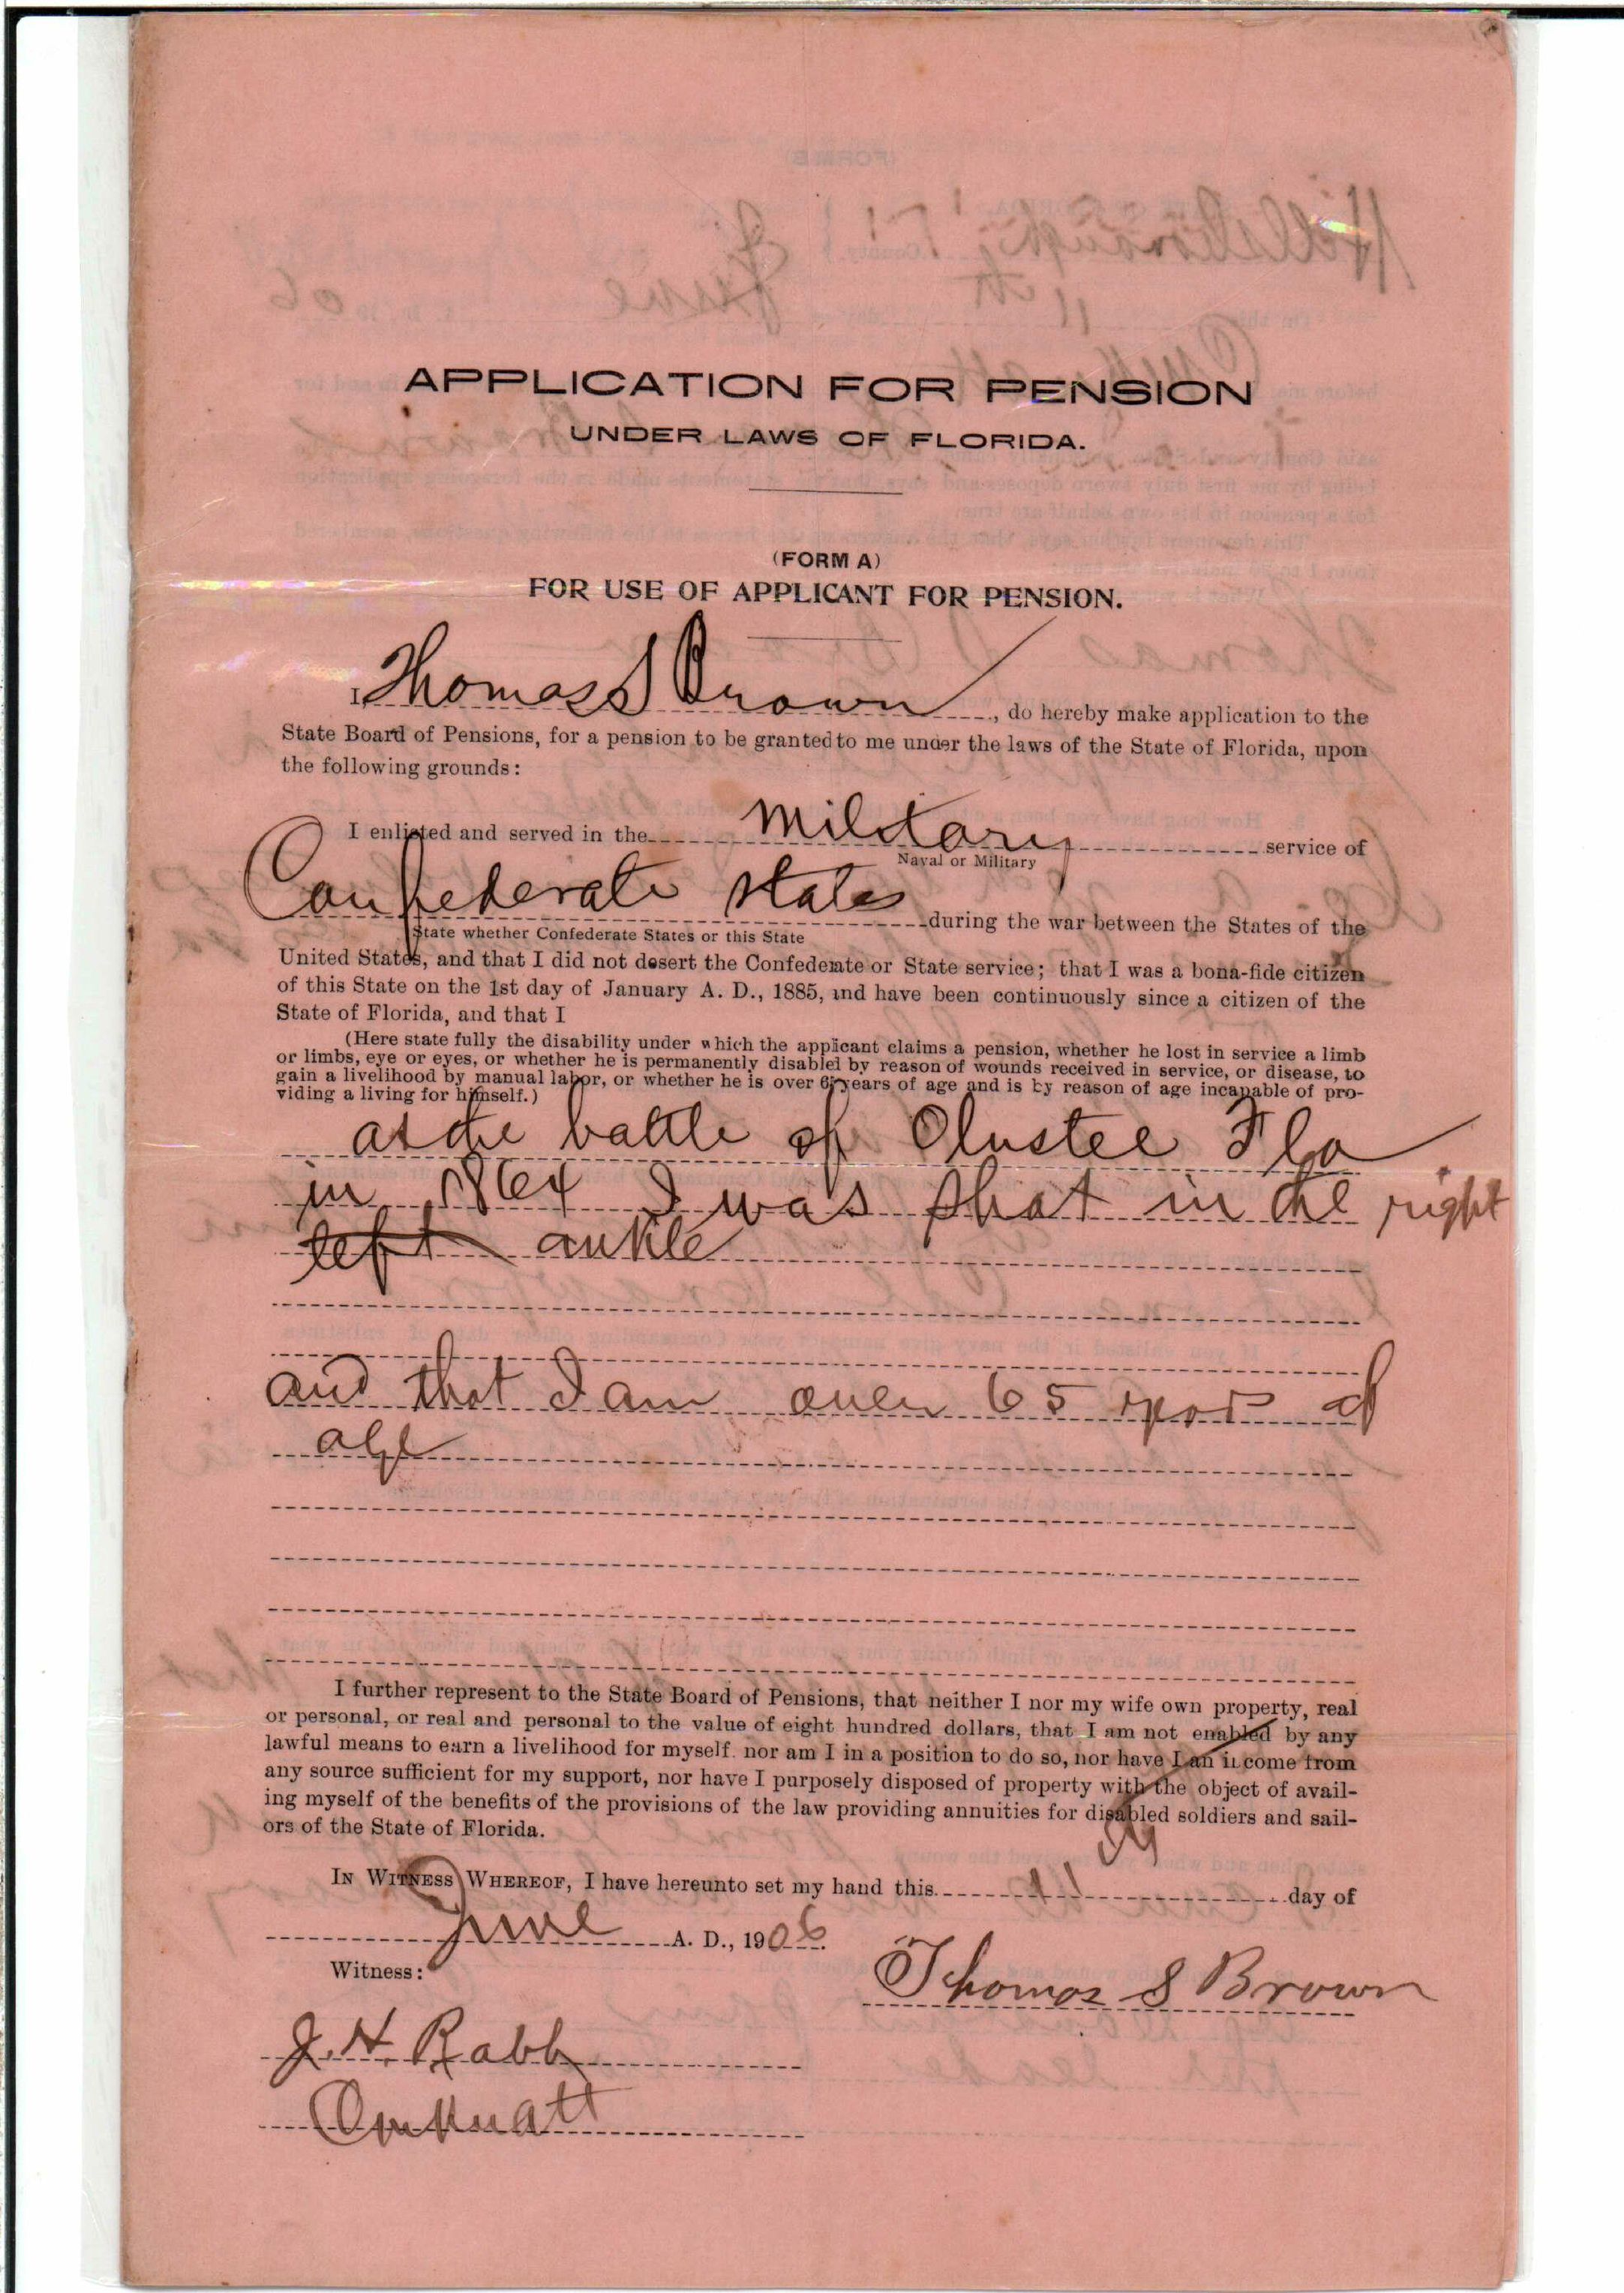 APPLICATION FOR PENSION
UNDER LAWS OF FLORIDA.
(FORM A)
FOR USE OF APPLICANT FOR PENSION.
I, Thomas S Brown, do hereby make application to the
State Board of Pensions, for a pension to be granted to me under the laws of the State of Florida, upon
the following grounds:
I enlisted and served in the military service of
Naval or Military
Confederate States during the war between the States of the
State whether Confederate States or this State
United States, and that I did not desert the Confederate or State service; that I was a bona-fide citizen
of this State on the 1st day of January A. D., 1885, and have been continuously since a citizen of the
State of Florida, and that I
(Here state fully the disability under which the applicant claims a pension, whether he lost in service a limb
or limbs, eye or eyes, or whether he is permanently disabled by reason of wounds received in service, or disease, to
gain a livelihood by manual labor, or whether he is over 65 years of age and is by reason of age incapable of pro-
viding a living for himself.)
at the battle of Olustee Fla
in 1864 I was shot in the right
left ankle
and that I am over 65 years of
age
I further represent to the State Board of Pensions, that neither I nor my wife own property, real
or personal, or real and personal to the value of eight hundred dollars, that I am not enabled by any
lawful means to earn a livelihood for myself. nor am I in a position to do so, nor have I an income from
any source sufficient for my support, nor have I purposely disposed of property with the object of avail-
ing myself of the benefits of the provisions of the law providing annuities for disabled soldiers and sail-
ors of the State of Florida.
IN WITNESS WHEREOF, I have hereunto set my hand this 11 day of
June A. D., 1906.
Witness:
Thomas S Brown
J. H. Rabb